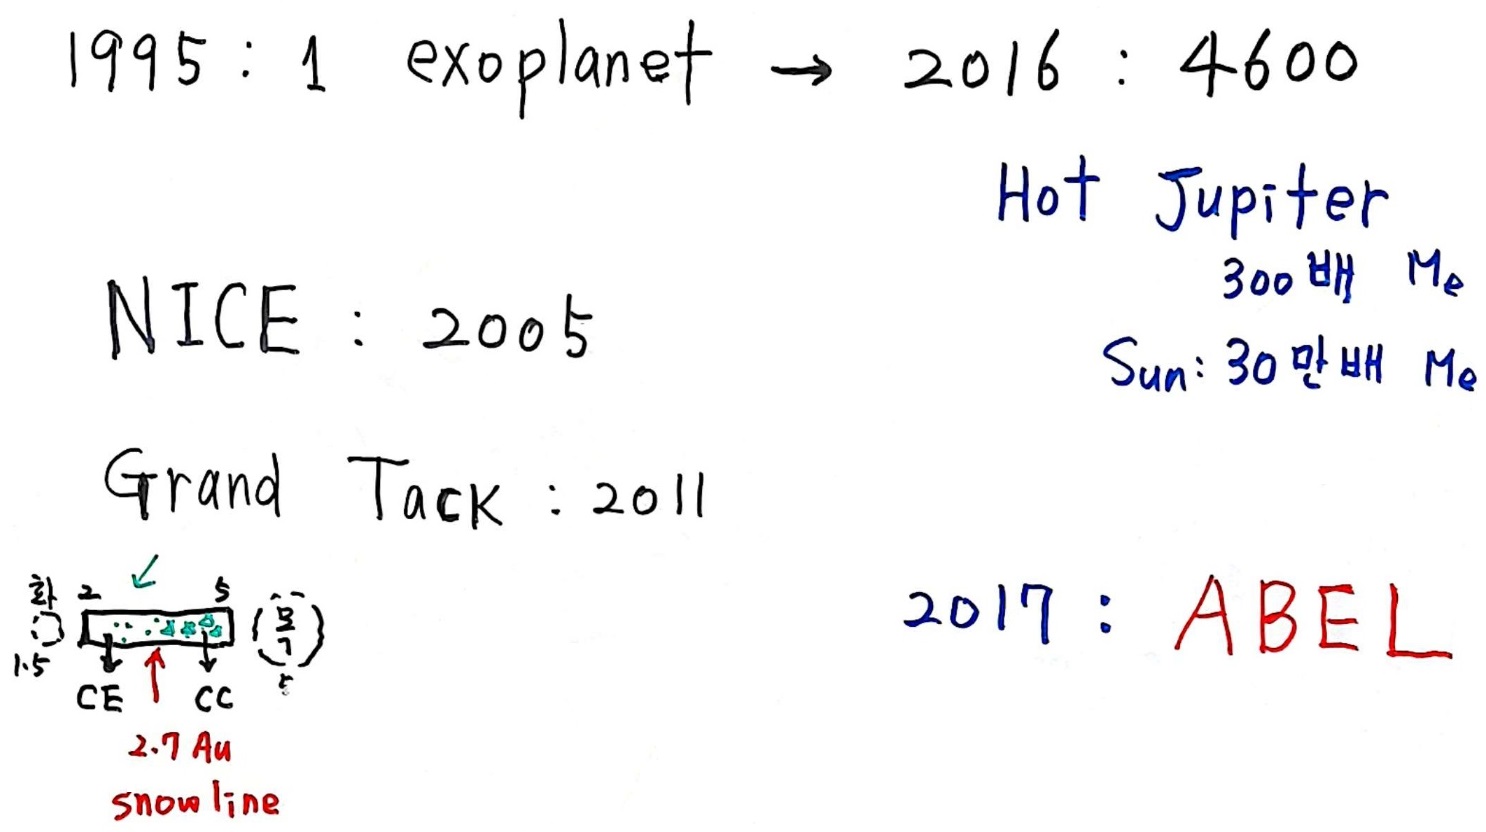 1995 : 1 exoplanet → 2016 : 4600
Hot Jupiter
300배 Me
NICE : 2005
Sun: 30만배 Me
Grand Tack : 2011
화 2 5
목
1.5
CE CC
2.7 Au
snow line
2017 : ABEL